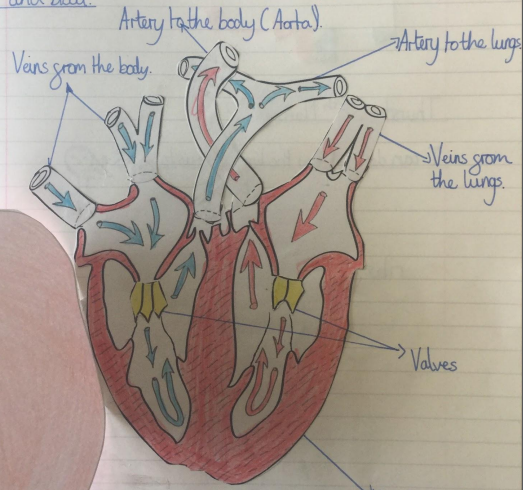 and blood.
Artery to the body (Aorta).
Artery to the lungs
Veins from the body.
Veins from
the lungs.
Valves